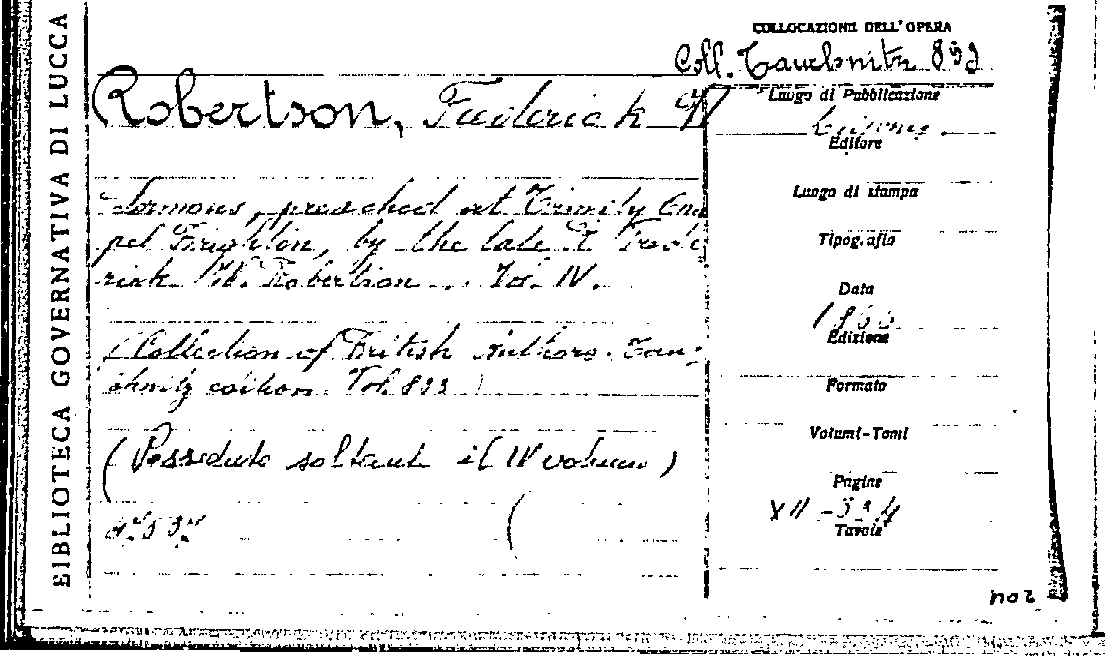 BIBLIOTECA GOVERNATIVA DI LUCCA
COLLOCAZIONE DELL'OPERA
Coll. Tauchnitz
Robertson, Frederick W
Sermons, preached at Trinity Cha
pel Brighton, by the late Frede
rick W. Robertson ... Vol. IV.
(Collection of British Authors. Tau-
chnitz edition. Vol. )
(Posseduto soltanto il IV volume)
Luogo di Pubblicazione
Editore
Luogo di stampa
Tipografia
Data
Edizione
Formato
Volumi-Tomi
Pagine
XII -
Tavole